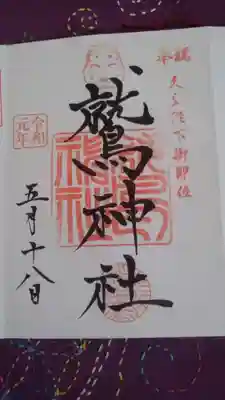 奉祝 天皇陛下御即位
鷲神社
令和
元年
五月十八日